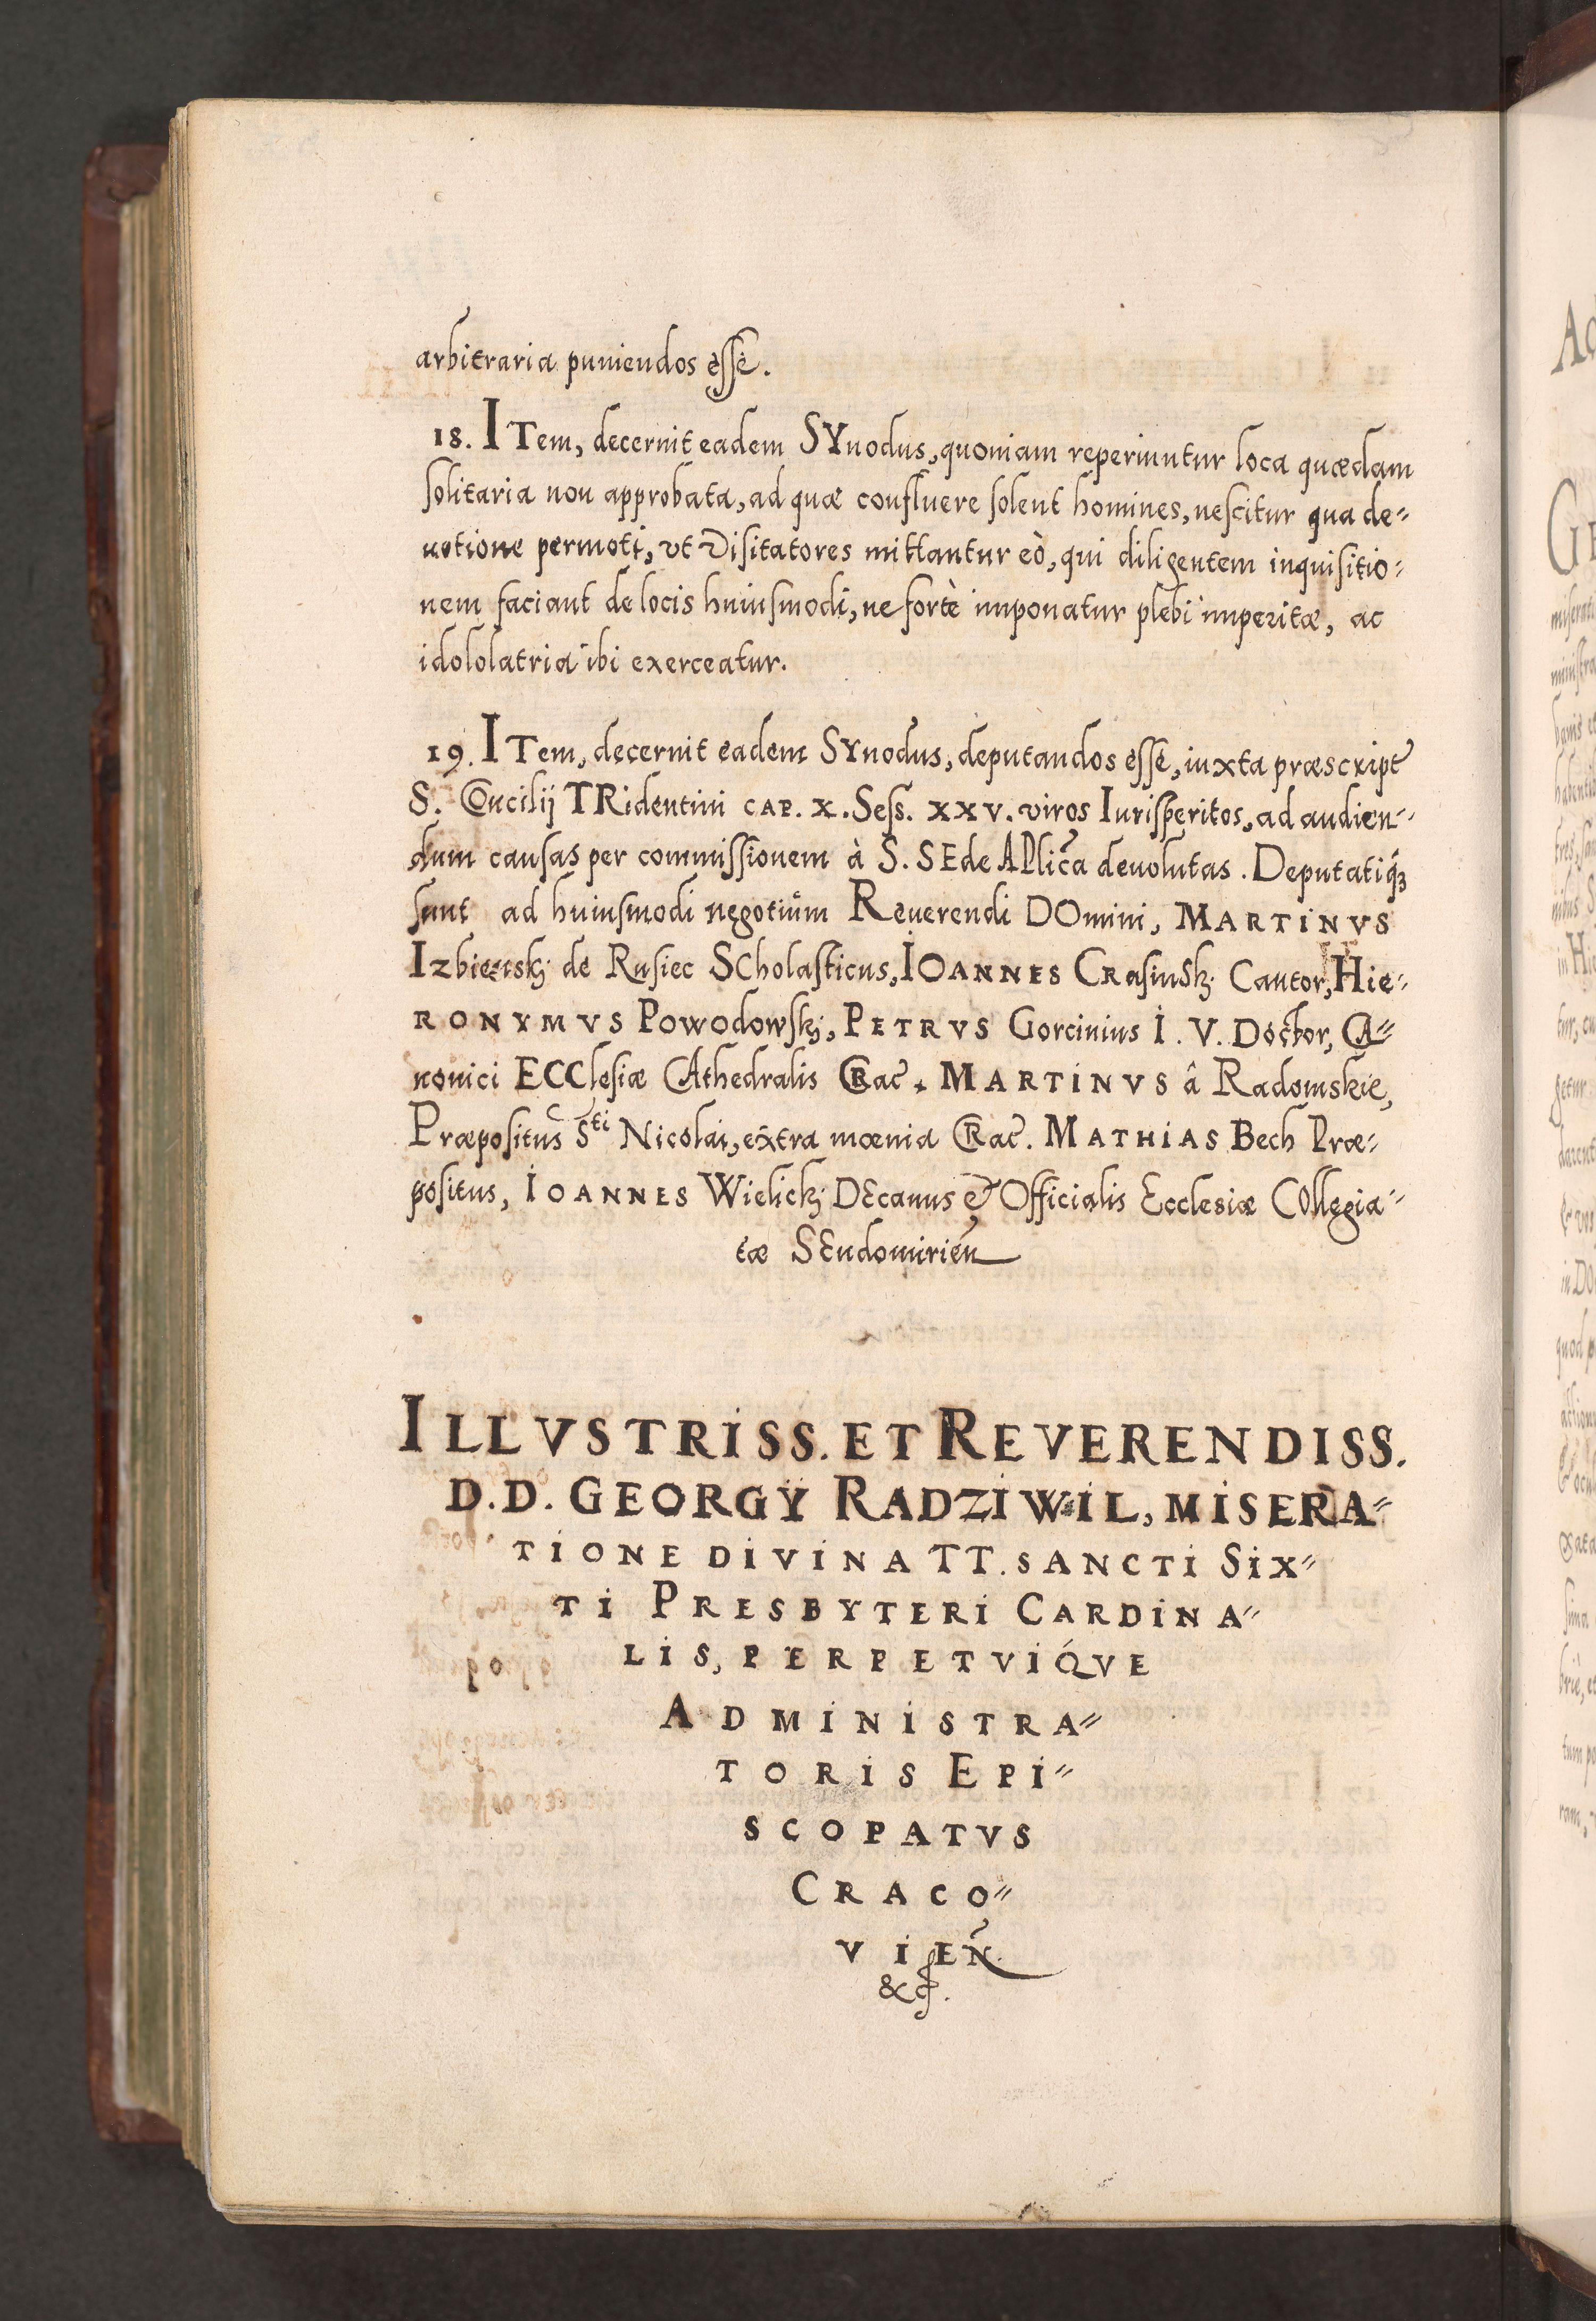 arbitraria puniendos esse.
18. ITem, decernit eadem SYnodus, quoniam reperiuntur loca quædam
solitaria non approbata, ad quæ confluere solent homines, nescitur qua de=
uotione permoti, vt Visitatores mittantur eò, qui diligentem inquisitio=
nem faciant de locis huiusmodi, ne fortè imponatur plebi imperitæ, ac
idololatria ibi exerceatur.
19. ITem, decernit eadem SYnodus, deputandos esse, iuxta præscript
S. COncilij TRidentini CAP. X. Sess. XXV. viros Iurisperitos, ad audien=
dum causas per commissionem à S. SEde APlica deuolutas. Deputatiq́ꝫ
sunt ad huiusmodi negotium Reuerendi DOmini, MARTINVS
Izbienskj de Rusiec SCholasticus, IOANNES CRasinskj Cantor, Hie=
RONYMVS Powodowskj, PETRVS Gorcinius I. V. Doctor, CA=
nonici ECClesiæ CAthedralis CRac. MARTINVS â Radomskie,
Præpositus Sti Nicolai, extra mœnia CRac. MATHIAS Bech Præ=
positus, IOANNES Wielickj DEcanus & Officialis Ecclesiæ COllegia=
tæ SEndomirien̄
ILLVSTRISS. ET REVERENDISS.
D. D. GEORGŸ RADZIWIL, MISERA=
TIONE DIVINA TT. SANCTI SIX=
TI PRESBYTERI CARDINA=
LIS, PERPETVIQ́VE
ADMINISTRA=
TORIS EPI=
SCOPATVS
CRACO=
VIEN̄
&c.